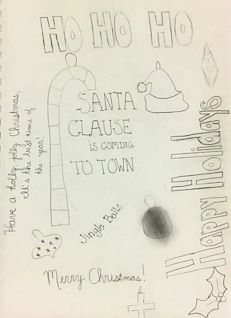 HO HO HO
SANTA
CLAUSE
IS COMING
TO TOWN
Have a holly jolly Christmas
It's the best time of
the year!
Happy Holidays
Jingle Bells
Merry Christmas!